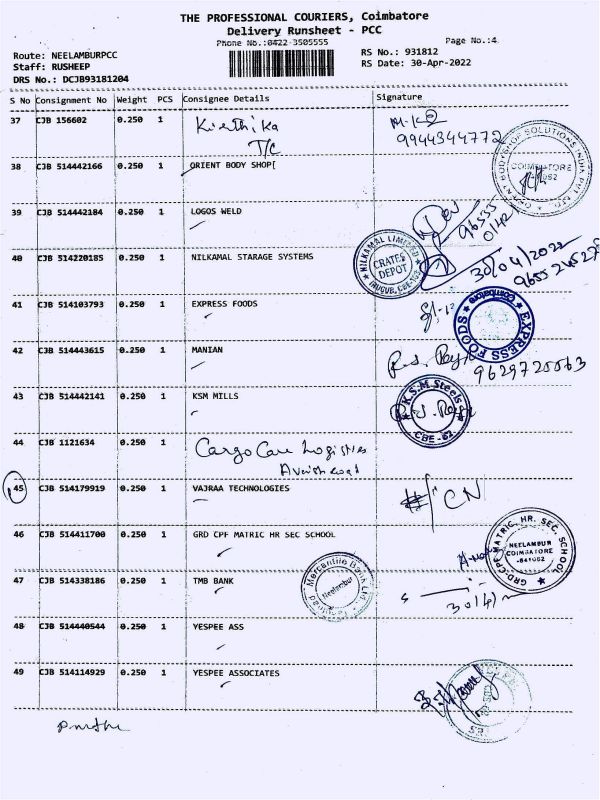 THE PROFESSIONAL COURIERS, Coimbatore
Delivery Runsheet - PCC
Phone No.:0422-3505555
Page No.:4
Route: NEELAMBURPCC
Staff: RUSHEEP
DRS No.: DCJB93181204
RS No.: 931812
RS Date: 30-Apr-2022
S No Consignment No Weight PCS Consignee Details Signature
37 CJB 156602 0.250 1 Kirthika T/C
9944344772
38 CJB 514442166 0.250 1 ORIENT BODY SHOP[
ORIENT BODYSHOP SOLUTIONS INDIA PVT LTD.
COIMBATORE
39 CJB 514442184 0.250 1 LOGOS WELD
96555
0142
40 CJB 514220185 0.250 1 NILKAMAL STARAGE SYSTEMS
NILKAMAL LIMITED
CRATES
DEPOT
30/04/2022
41 CJB 514103793 0.250 1 EXPRESS FOODS
EXPRESS FOODS
Coimbatore
42 CJB 514443615 0.250 1 MANIAN
9629720063
43 CJB 514442141 0.250 1 KSM MILLS
K.S.M. Steels
CBE - 62
44 CJB 1121634 0.250 1 Cargo Care Logistics
45 CJB 514179919 0.250 1 VAJRAA TECHNOLOGIES
CN
46 CJB 514411700 0.250 1 GRD CPF MATRIC HR SEC SCHOOL
GRD-CPF MATRIC. HR. SEC. SCHOOL
NEELAMBUR
COIMBATORE
-641062
47 CJB 514338186 0.250 1 TMB BANK
Mercantile Bank Ltd.
Neelambur
48 CJB 514440544 0.250 1 YESPEE ASS
49 CJB 514114929 0.250 1 YESPEE ASSOCIATES